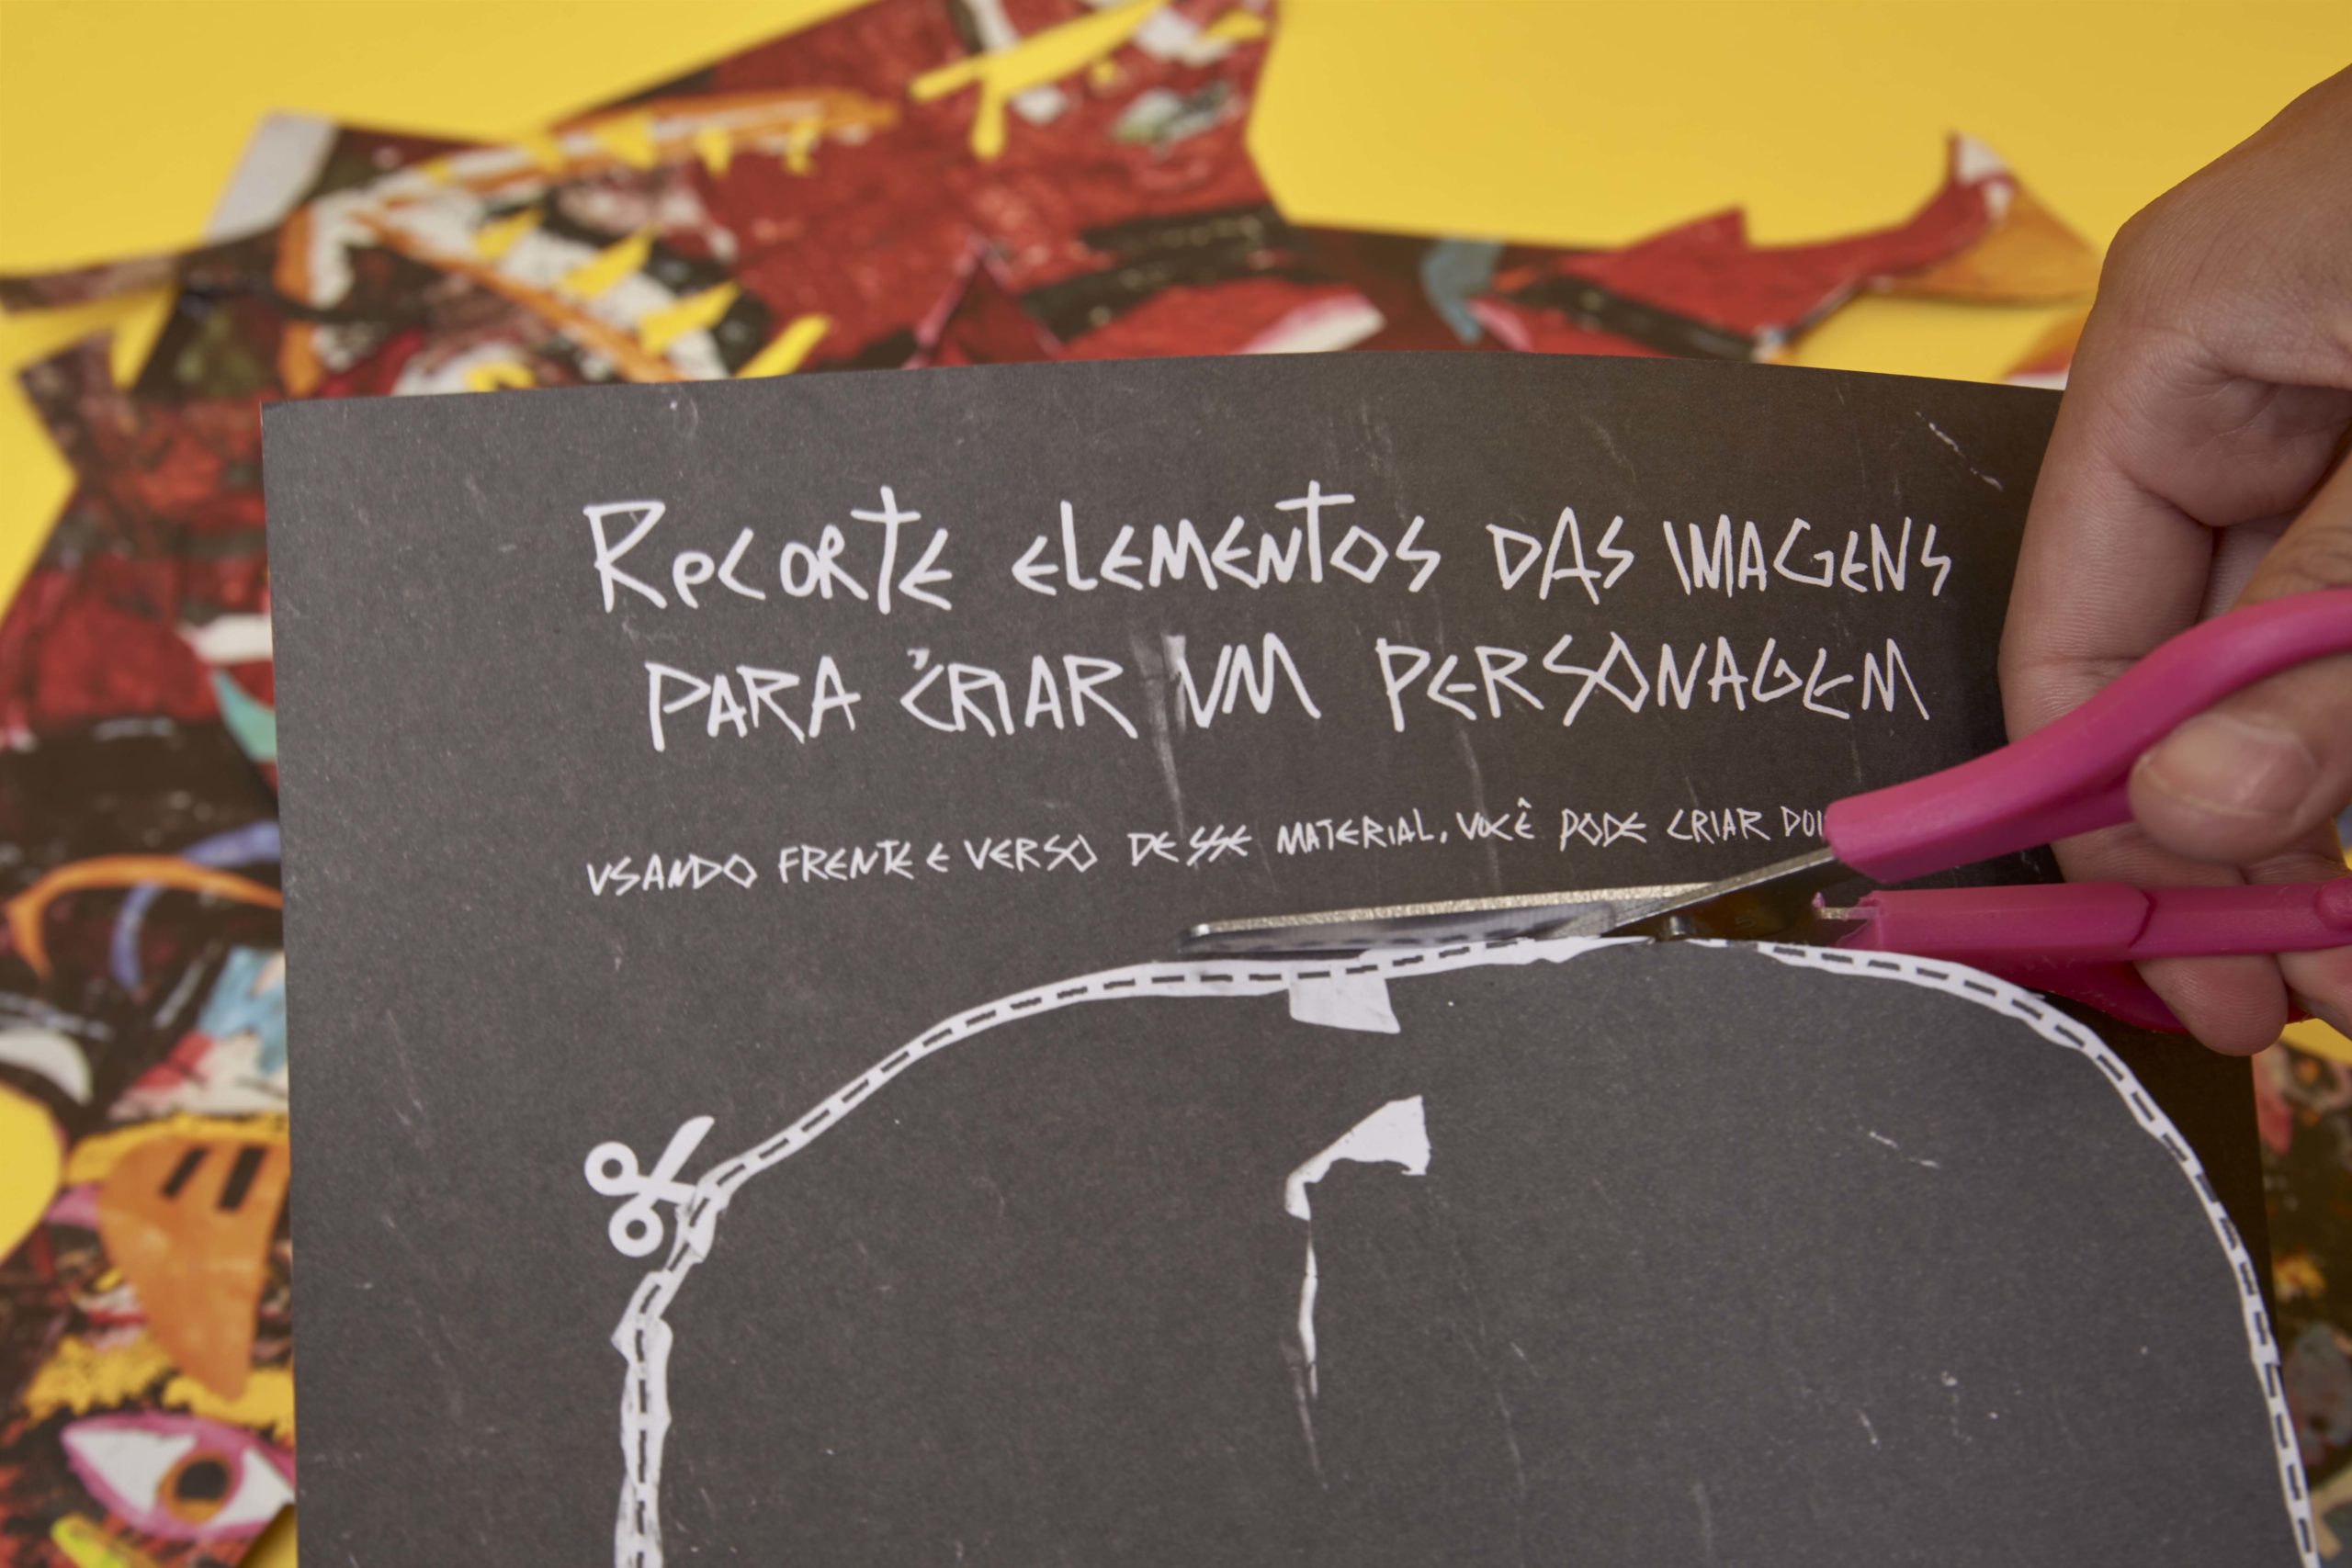 Recorte elementos das imagens
para criar um personagem
usando frente e verso desse material, você pode criar